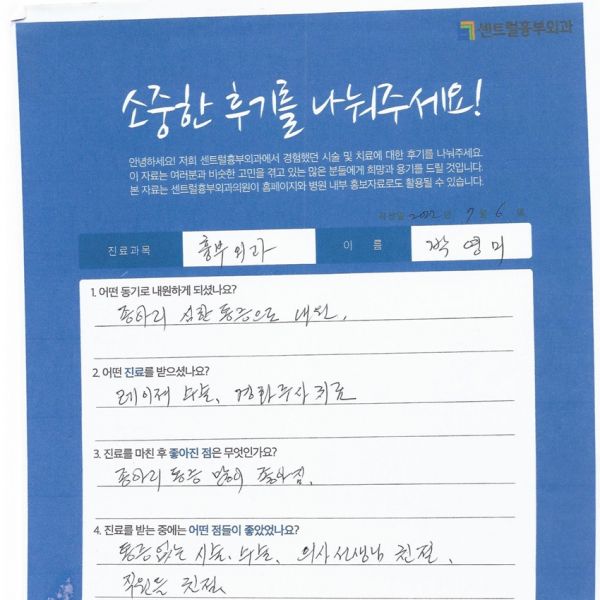 센트럴흉부외과
소중한 후기를 나눠주세요!
안녕하세요! 저희 센트럴흉부외과에서 경험했던 시술 및 치료에 대한 후기를 나눠주세요.
이 자료는 여러분과 비슷한 고민을 겪고 있는 많은 분들에게 희망과 용기를 드릴 것입니다.
본 자료는 센트럴흉부외과의원이 홈페이지와 병원 내부 홍보자료로도 활용될 수 있습니다.
작성일 2022 년 7 월 6 일
진료과목 흉부외과 이 름 박영미
1. 어떤 동기로 내원하게 되셨나요?
종아리 심한 통증으로 내원.
2. 어떤 진료를 받으셨나요?
레이저 수술, 경화주사치료
3. 진료를 마친 후 좋아진 점은 무엇인가요?
종아리 통증 많이 좋아짐.
4. 진료를 받는 중에는 어떤 점들이 좋았었나요?
통증없는 시술, 수술, 의사선생님 친절,
직원들 친절